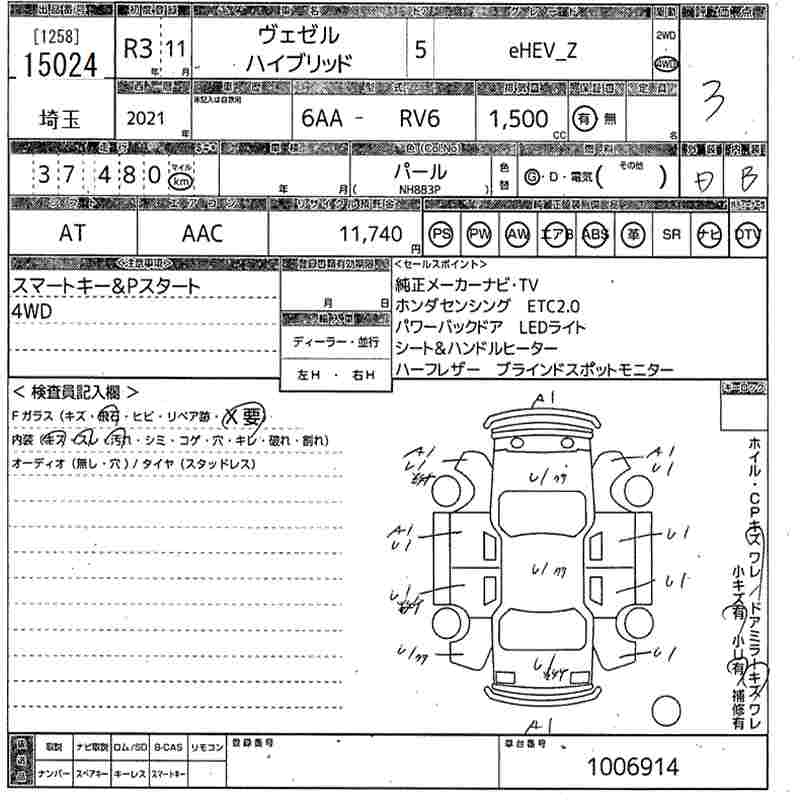 出品番号 初度登録 車名 ドア グレード 駆動 評価点
[1258]
15024
R3 年 11 月
ヴェゼル
ハイブリッド
5
eHEV_Z
2WD
4WD
3
埼玉
2021 年
車歴
未記入は自家用
型式
6AA - RV6
排気量
1,500 CC
保証書
有 無
名
走行 車検 色(Co.No) 燃料 外装 内装
37480 マイル km
年 月
パール
(NH883P)
色替
G・D・電気( その他 )
B
シフト エアコン リサイクル預託金
AT
AAC
11,740 円
PS PW AW エアB ABS 革 SR ナビ DTV
<注意事項>
スマートキー&Pスタート
4WD
登録書類有効期限
月 日
輸入車
ディーラー・並行
左H ・ 右H
<セールスポイント>
純正メーカーナビ・TV
ホンダセンシング ETC2.0
パワーバックドア LEDライト
シート&ハンドルヒーター
ハーフレザー ブラインドスポットモニター
< 検査員記入欄 >
Fガラス (キズ・飛石・ヒビ・リペア跡・X要)
内装 (キズ・スレ・汚れ・シミ・コゲ・穴・キレ・破れ・割れ)
オーディオ (無し・穴) / タイヤ (スタッドレス)
A1
A1
U1
A1
U1
A1
U1
U1
U1
U1
U1
A1
ホイル・CPキズワレ / ドアミラーキズワレ
小キズ有 小U有 補修有
後送品
取説 ナビ取説 ロム/SD B-CAS リモコン
ナンバー スペアキー キーレス スマートキー
登録番号
車台番号
1006914